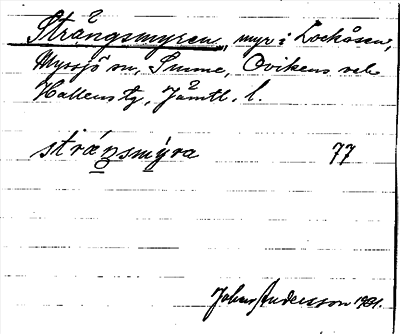 Strångsmyren, myr i Lockåsen,
Myssjö sn, Sunne, Ovikens och
Hallens tg, Jämtl. l.
stráṇsmỵra 77
Johan Andersson 1931.